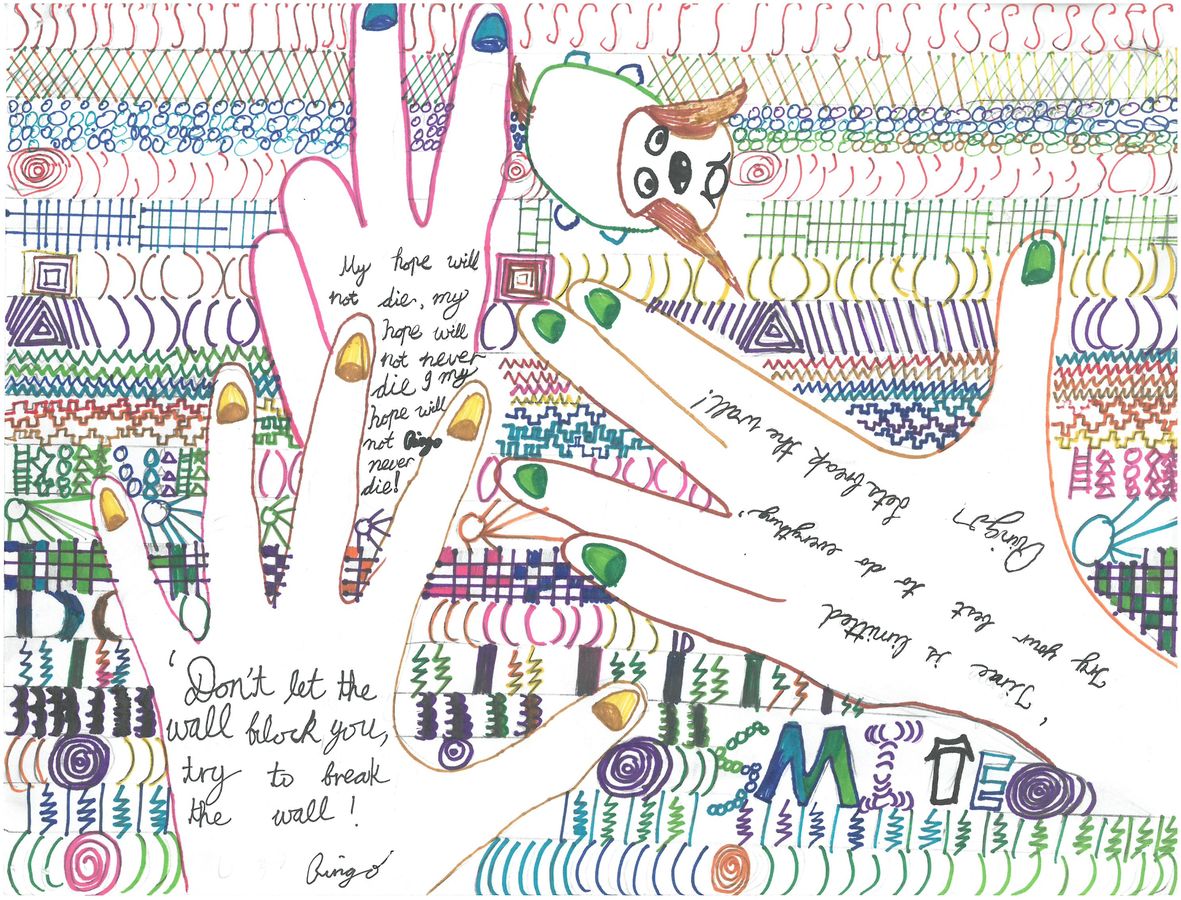 My hope will
not die, my
hope will
not never
die I my
hope will
not Ringo
never
die!
'Time is limitted
Try your best to do everything.'
Lets break the wall!
Ringo
'Don't let the
wall block you,
try to break
the wall!
Ringo
SMITE